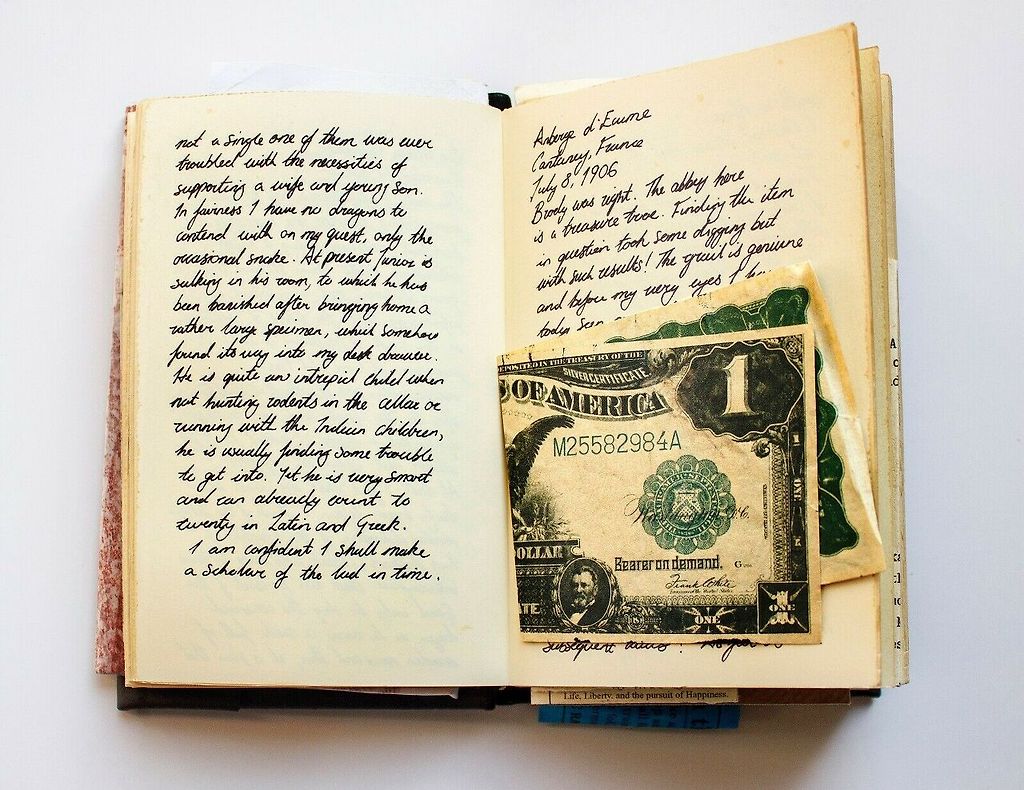 not a single one of them was ever
troubled with the necessities of
supporting a wife and young son.
In fairness I have no dragons to
contend with on my quest, only the
occasional snake. At present Junior is
sulking in his room, to which he has
been banished after bringing home a
rather large specimen, which somehow
found its way into my desk drawer.
He is quite an intrepid child when
not hunting rodents in the cellar or
running with the Indian children,
he is usually finding some trouble
to get into. Yet he is very smart
and can already count to
twenty in Latin and Greek.
I am confident I shall make
a scholar of the lad in time.
Auberge d'Eaume
France
July 8, 1906
Brody was right. The abbey here
is a treasure trove. Finding the item
in question took some digging but
with such results! The grail is genuine
and before my very eyes I have
today seen
DEPOSITED IN THE TREASURY OF THE
SILVER CERTIFICATE
OF AMERICA
1
M25582984A
DOLLAR
Bearer on demand.
Frank White
ONE
ONE
ONE
subsequent
Life, Liberty, and the pursuit of Happiness.